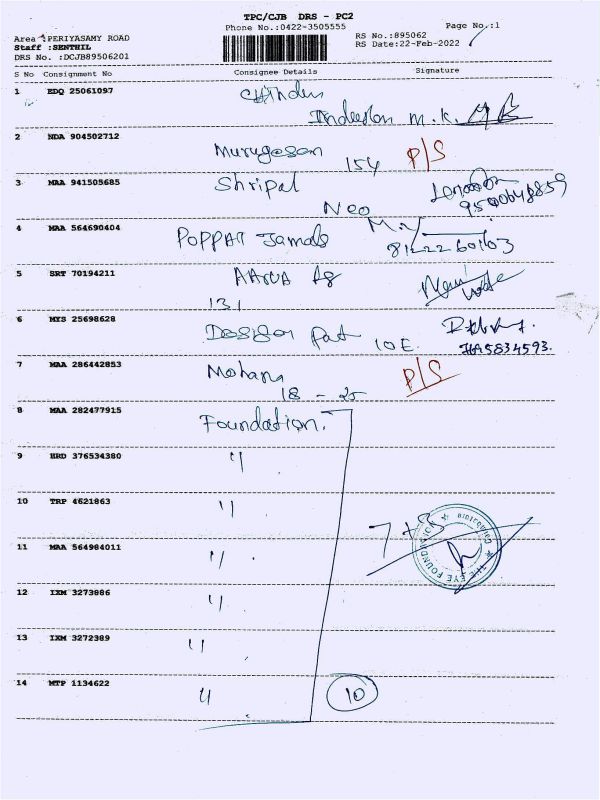 TPC/CJB DRS - PC2
Phone No.:0422-3505555
Page No.:1
Area :PERIYASAMY ROAD
Staff :SENTHIL
DRS No. :DCJB89506201
RS No.:895062
RS Date:22-Feb-2022
S No Consignment No Consignee Details Signature
1 EDQ 25061097
m.k.
2 NDA 904502712 Murugesan
154 P/S
3 MAA 941505685 Shripal
Neo
4 MAA 564690404 POPPAT Jamals
8122260103
5 SRT 70194211
131
6 MYS 25698628
10E.
7 MAA 286442853 Mohana
18 - 25 P/S
8 MAA 282477915 Foundation.
9 HRD 376534380 "
10 TRP 4621863 "
7+3
THE EYE FOUNDATION
11 MAA 564984011 "
12 IXM 3273886 "
13 IXM 3272389 "
14 MTP 1134622 "
10